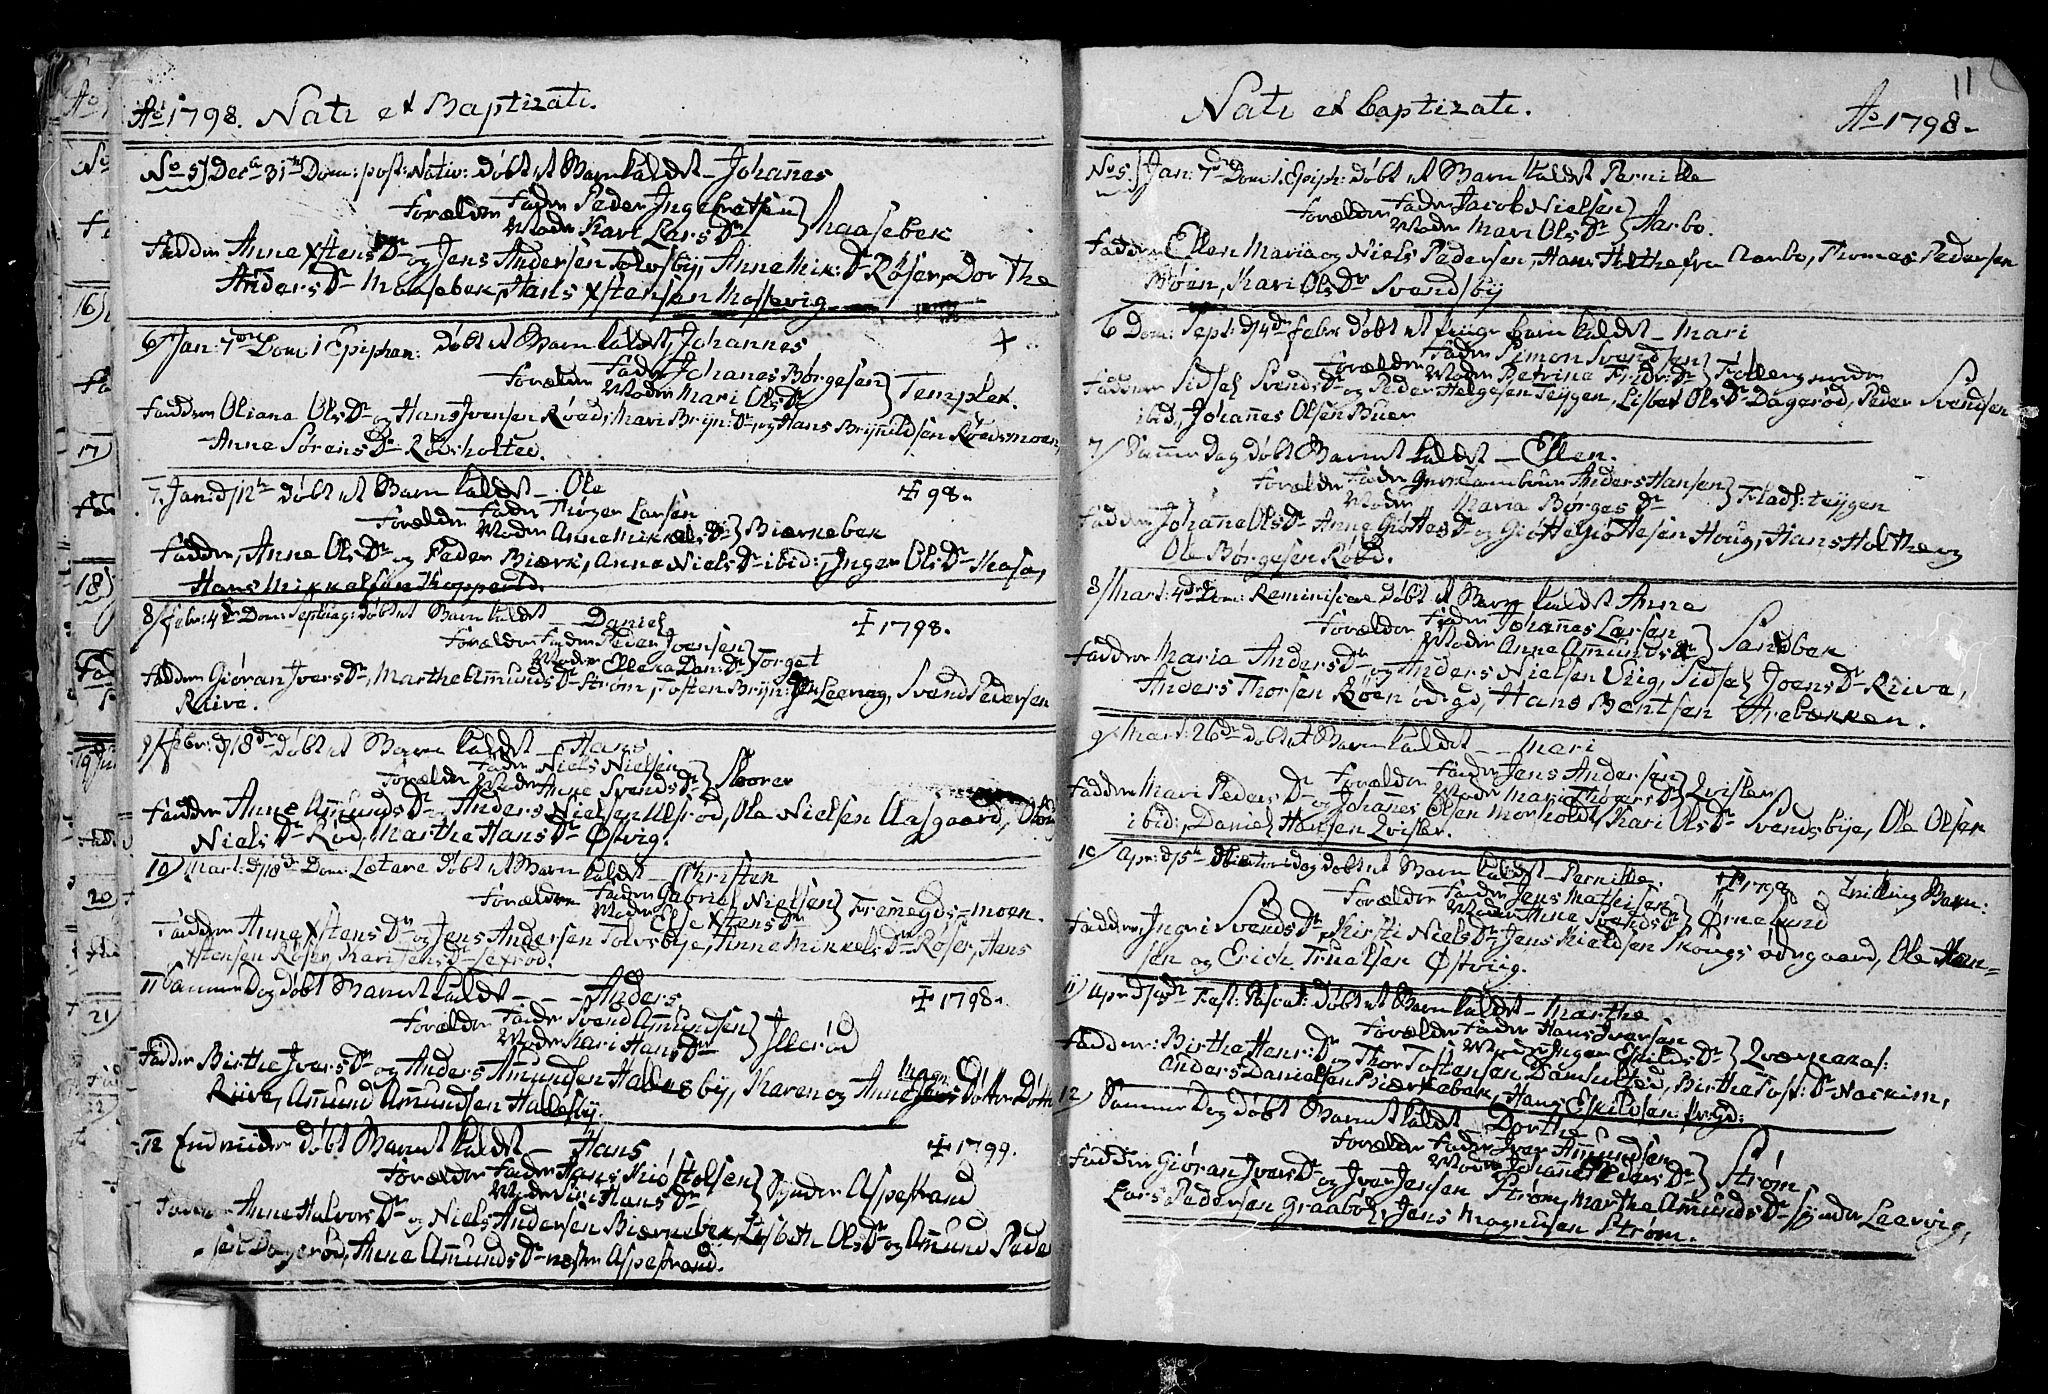 Ao 1798. Nati et Baptizati.
No 5/ Decb 31te Dom: post: Nativ: døbt et Barn kaldet - Johanes
Forældre Fader Peder Ingebretsen
Moder Kari Lars Dr } Maasebek
Faddere Anne Xstens Dr og Jens Andersen Tolvsby, Anne Mik: Dr Røser, Dorthe
Anders Dr Maasebek, Hans Xstensen Mossevig
6/ Jan: 7de Dom: 1 Epiphan: døbt et Barn kaldet Johannes +
Forældre Fader Johanes Børgesen
Moder Mari Ols Dr } Templet.
Faddere Oliana Ols Dr og Hans Iversen Røed, Mari Brÿn: Dr, og Hans Brÿnildsen Røedsmoen,
Anne Sørens Dr Rødsholtee.
7. Jan: d 12te døbt et Barn kaldet - Ole + 98.
Forældre Fader Thrøger Larsen
Moder Anne Mikkels Dr } Biærnebek
Faddere, Anne Ols Dr og Peder Biærk, Anne Niels Dr ibid:, Inger Ols Dr Kasa,
Hans Mikkalsen Kopperud.
8/ Febr: 4de Dom: Septuag: døbt et Barn kaldet - Daniel + 1798.
Forældre Fader Peder Joensen
Moder Ellena Dan: Dr } Torget
Faddere Giøran Ivers Dr, Marthe Amunds Dr Strøm, Tosten Brÿn: Leervag, Svend Pedersen
Riive.
9/ Febr: d 18de døbt et Barn kaldet - Hans
Forældre Fader Niels Nielsen
Moder Anne Svends Dr } Skorer
Faddere Anne Amunds Dr og Anders Nielsen Ulsrød, Ole Nielsen Aasgaard,
Niels Dr Rød, Marthe Hans Dr Østvig.
10/ Mart: d 18de Dom: Lætare døbt et Barn kaldet - Christen
Forældre Fader Gabriel Nielsen
Moder Else Xstens Dr } Fremegds=moen.
Faddere Anne Xstens Dr og Jens Andersen Tolvsbye, Anne Mikkels Dr Røser, Hans
Xstensen Røser, Kari Jens Dr Sexrød.
11 Samme Dag døbt Barnet kaldet - - - Anders + 1798.
Forældre Fader Svend Amundsen
Moder Kari Hans Dr } Illerød
Faddere Birthe Ivers Dr og Anders Amundsen Hallesby, Karen og Anne Magn Døttre
Riive, Amund Amundsen Hallesby.
12 Endvidere døbt Barnet kaldet - Hans + 1799.
Forældre Fader Hans Kiøstolsen
Moder Siri Hans Dr } Synder Aspestrand
Anne Halvors Dr og Niels Andersen Biærnebek, Lisbeth Ols Dr og Amund Peder
sen Dagerød, Anne Amunds Dr næstre Aspestrand.
11
Nati et baptizati. Ao 1798.
No 5/ Jan: 7de Dom 1. Epiph: døbt et Barn kaldet Pernille
Forældre Fader Jacob Nielsen
Moder Mari Ols Dr } Aarbo.
Faddere Ellen Maria og Niels Pedersen, Hans Holthe fra Narbo, Thomas Pedersen
Bøen, Kari Ols Dr Svendsby
6 Dom: Sept: d 4de Febr døbt et barn kaldet - Mari
Forældre Fader Simon Svendsen
Moder Petrine Fridr: Dr } Follerg nordre
Faddere Sidsel Svends Dr og Peder Helgesen Teÿgen, Lisbet Ols Dr Dagerød, Peder Svendsen
ibid, Johanes Olsen Buer
7/ Samme Dag døbt Barnet kaldet - Ellen.
Forældre Fader Anders Hansen
Moder Maria Børges Dr } Fladl: teÿgen
Faddere Johane Ols Dr Anne Giøttes Dr og Giøtte Giøttesen Houg, Hans Holthe og
Ole Børgesen Røed.
8/ Mart: 4de Dom: Reminiscere døbt et Barn kaldet Anne
Forældre Fader Johanes Larsen
Moder Anne Amunds Dr } Sandbek
Faddere Maria Anders Dr og Anders Nielsen Viig, Sidsel Joens Dr Riiva,
Anders Thorsen Røenødigd, Hans Bentsen Arebekken.
9/ Mart: 26de døbt et Barn kaldet - - Mari
Forældre Fader Jens Andersen
Moder Mari Thrøgers Dr } Qvisler
Faddere Mari Peders Dr og Johanes Olsen Morholdt, Kari Ols Dr Svendsbÿe, Ole Olsen
ibid:, Daniel Hansen Qvisler.
10/ Apr: d 5te Skiærtorsdag døbt et Barn kaldet - Pernille. + 1798 Tvilling Barn:
Forældre Fader Jens Mathisen
Moder Anne Svends Dr } Ørnelund
Faddere, Ingri Svends Dr, Kirsti Niels Dr Jens Kieldsen Skougs ødegaard, Ole Han=
sen og Erich Truelsen Østviig.
11/ Apr d 8de Fest: Pascat: døbt et Barn kaldet - Marthe
Forældre Fader Hans Iversen
Moder Inger Eskilds Dr } Qværnaras:
Faddere: Birthe Henr: Dr og Thor Tostensen Damholted, Birthe Tost: Dr Naekim,
Anders Danielsen Biærkebek, Hans Eskildsen
12/ Samme Dag døbt Barnet kaldet - Dorthe
Forældre Fader Iver Amundsen
Moder Johane Peders Dr } Strøm
Faddere Giøran Ivers Dr og Iver Jensen Strøm, Marthe Amunds Dr Synder Leervig,
Lars Pedersen Graabøl, Jens Magnusen Strøm.